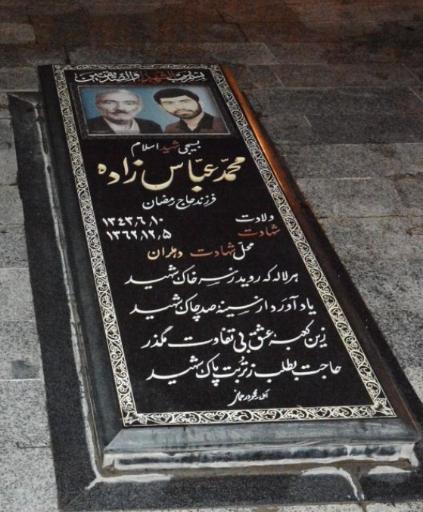 بسم رب الشهداء والصدیقین
بسیجی شهید اسلام
محمد عباس زاده
فرزند حاج رمضان
ولادت ۱۳۴۳٫۶٫۱۰
شهادت ۱۳۶۲٫۱۲٫۵
محل شهادت دهلران
هر لاله که روید ز سر خاک شهید
یاد آورد از سینه صد چاک شهید
زین کعبه عشق بی تفاوت مگذر
حاجت بطلب ز تربت پاک شهید